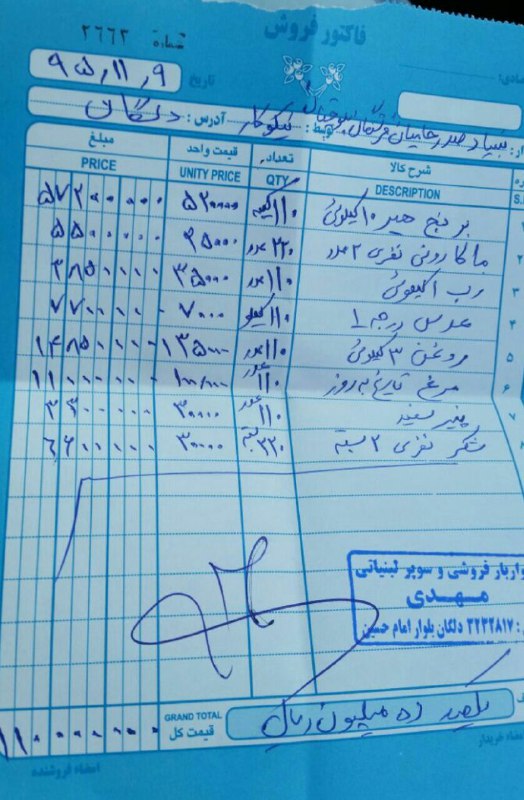 فاکتور فروش
شماره ۲۶۶۲
تاریخ ۹۵٫۱۱٫۹
توسط: نیکوکار آدرس: دلگان
شرح کالا تعداد قیمت واحد مبلغ
DESCRIPTION QTY UNITY PRICE PRICE
۱ برنج هیر ۱۰ کیلوئی ۱۱۰ کیسه ۵۲۰۰۰۰ ۵۷۲۰۰۰۰۰
۲ ماکارونی نفری ۲ عدد ۲۲۰ عدد ۲۵۰۰۰ ۵۵۰۰۰۰۰
۳ رب ۱ کیلوئی ۱۱۰ عدد ۳۵۰۰۰ ۳۸۵۰۰۰۰
۴ عدس درجه ۱ ۱۱۰ کیلو ۷۰۰۰۰ ۷۷۰۰۰۰۰
۵ روغن ۳ کیلوئی ۱۱۰ عدد ۱۳۵۰۰۰ ۱۴۸۵۰۰۰۰
۶ مرغ تاریخ به روز ۱۱۰ عدد ۱۰۰٫۰۰۰ ۱۱۰۰۰۰۰۰
۷ پنیر سفید ۱۱۰ عدد ۳۰۰۰۰ ۳۳۰۰۰۰۰
شکر نفری ۲ بسته ۲۲۰ بسته ۳۰۰۰۰ ۶۶۰۰۰۰۰
خواربار فروشی و سوپر لبنیاتی
مهدی
۳۲۳۲۸۱۷ دلگان بلوار امام حسین
یکصد ده میلیون ریال GRAND TOTAL ۱۱۰۰۰۰۰۰۰
قیمت کل
امضاء خریدار امضاء فروشنده